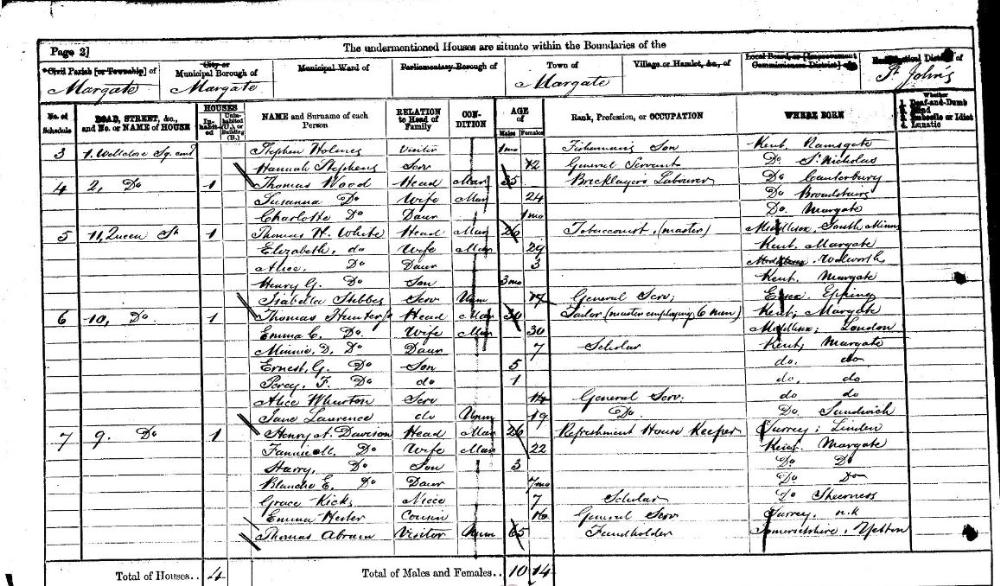 Page 2]
The undermentioned Houses are situate within the Boundaries of the
Civil Parish [or Township] of
City or Municipal Borough of
Municipal Ward of
Parliamentary Borough of
Town of
Village or Hamlet, &c., of
Local Board, or [Improvement Commissioners District] of
Ecclesiastical District of
Margate Margate Margate St John's
No. of Schedule
ROAD, STREET, &c., and No. or NAME of HOUSE
HOUSES
Inhabited
Uninhabited (U.), or Building (B.)
NAME and Surname of each Person
RELATION to Head of Family
CONDITION
AGE of
Males Females
Rank, Profession, or OCCUPATION
WHERE BORN
Whether
1. Deaf-and-Dumb
2. Blind
3. Imbecile or Idiot
4. Lunatic
3 1, Sq Stephen Holmes Visitor 1 mo Fisherman's Son Kent Ramsgate
Hannah Stephens Serv 12 General Servant Do St Nicholas
4 2, Do 1 Thomas Wood Head Mar 25 Bricklayer's Labourer Do Canterbury
Susanna Do Wife Mar 24 Do Broadstairs
Charlotte Do Daur 1 mo Do Margate
5 11, Queen St 1 Thomas H. White Head Mar 26 Tobacconist, (master) Middlesex, South
Elizabeth, do Wife Mar 29 Kent, Margate
Alice, Do Daur 3
Henry G. Do Son 3 mo Kent, Margate
Isabella Stebbes Serv Unm 17 General Serv; Essex, Epping
6 10, Do 1 Thomas Hunter Head Mar 30 Tailor (master employing 6 men) Kent; Margate
Emma C. Do Wife Mar 30 Middlesex; London
Minnie, D. Do Daur 7 Scholar Kent, Margate
Ernest, G. Do Son 5 do, do
Percy, F. Do do 1 do, do
Alice Whurton Serv 14 General Serv. do do
Jane Laurence do Unm 19 Do. Do Sandwich
7 9. Do 1 Henry A. Davison Head Mar 26 Refreshment House Keeper Surrey;
Fannie M. Do Wife Mar 22 Kent. Margate
Harry, Do Son 3 Do Do
Blanche E. Do Daur 7 mo Do Do
Grace Kick Niece 7 Scholar Do Sheerness
Emma Hester Cousin 16 General Serv Surrey, n.k
Thomas Abram Visitor Unm 65 Fundholder Somersetshire, Yatton
Total of Houses.. 4 Total of Males and Females.. 10 14